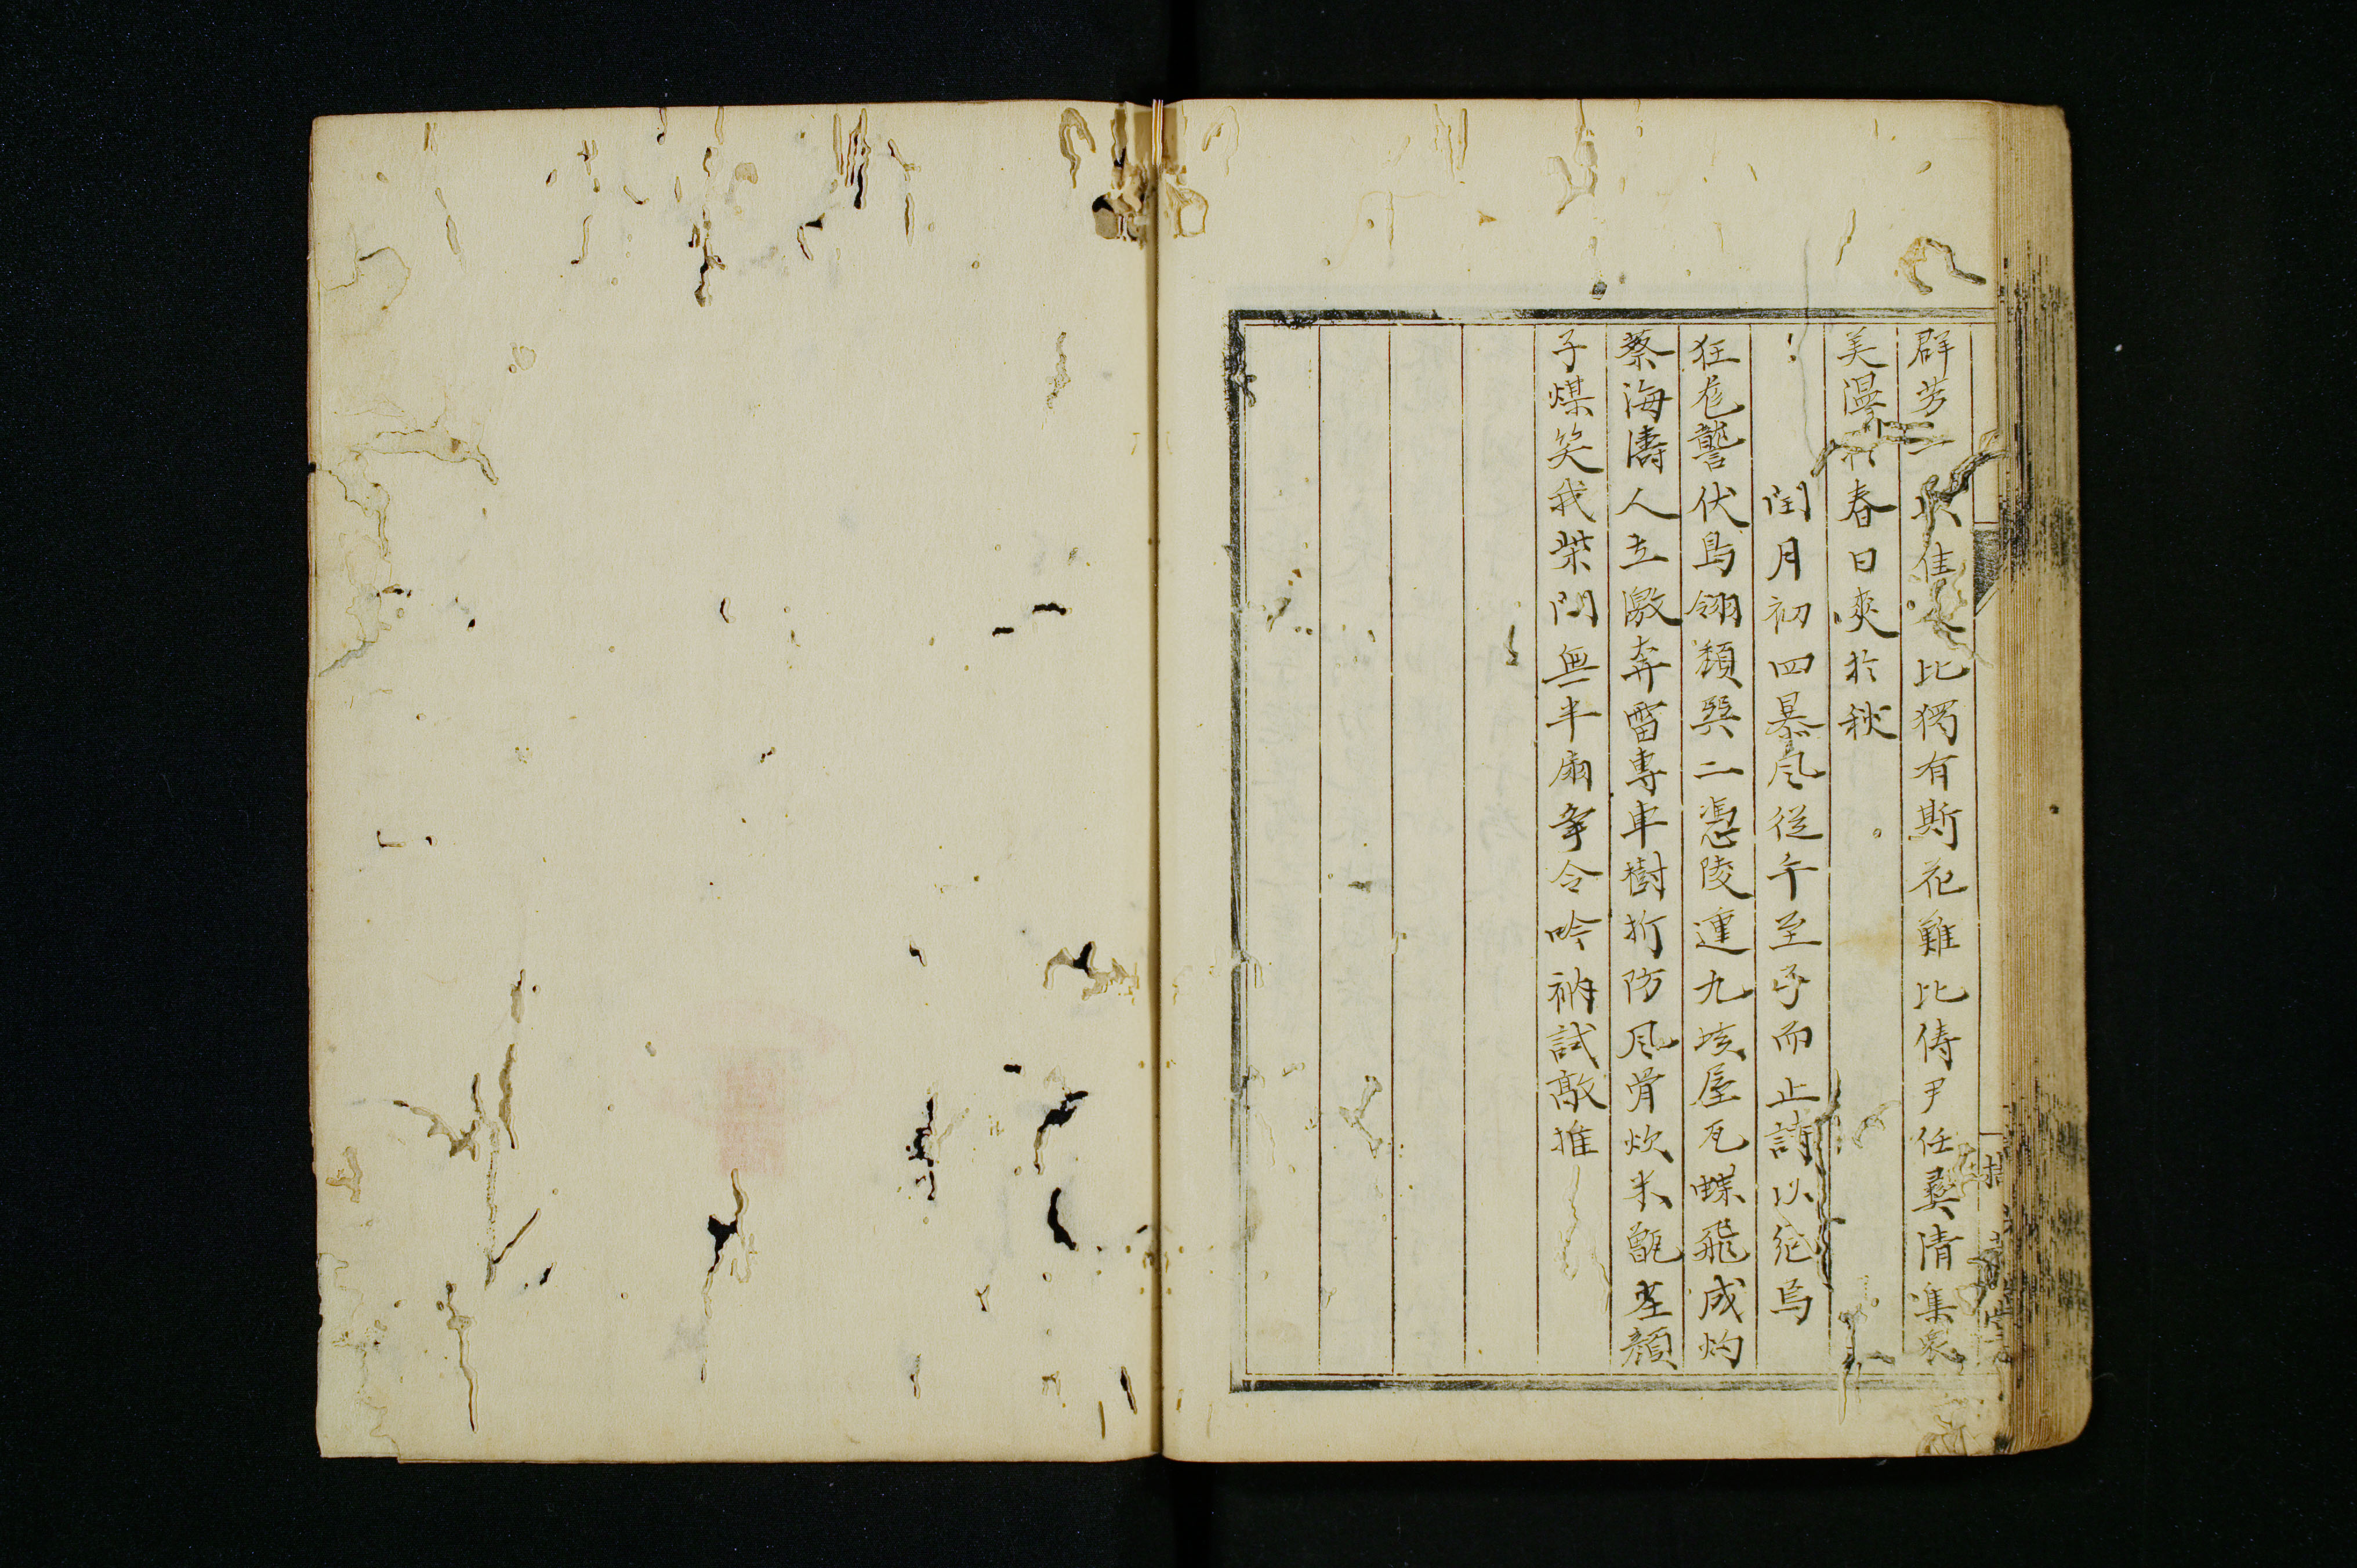 群芳一 佳 比獨有斯花難比儔尹任彝清集衆
美漫 春日爽於秋
閏月初四暴风從午至子而止詩以紀焉
狂尨讋伏鳥翎頽巽二憑陵連九垓屋瓦蝶飛成灼
蔡海濤人立激奔雷專車樹折防风骨炊米甑塵顏
子煤笑我柴門無半扇爭令吟衲試敲推